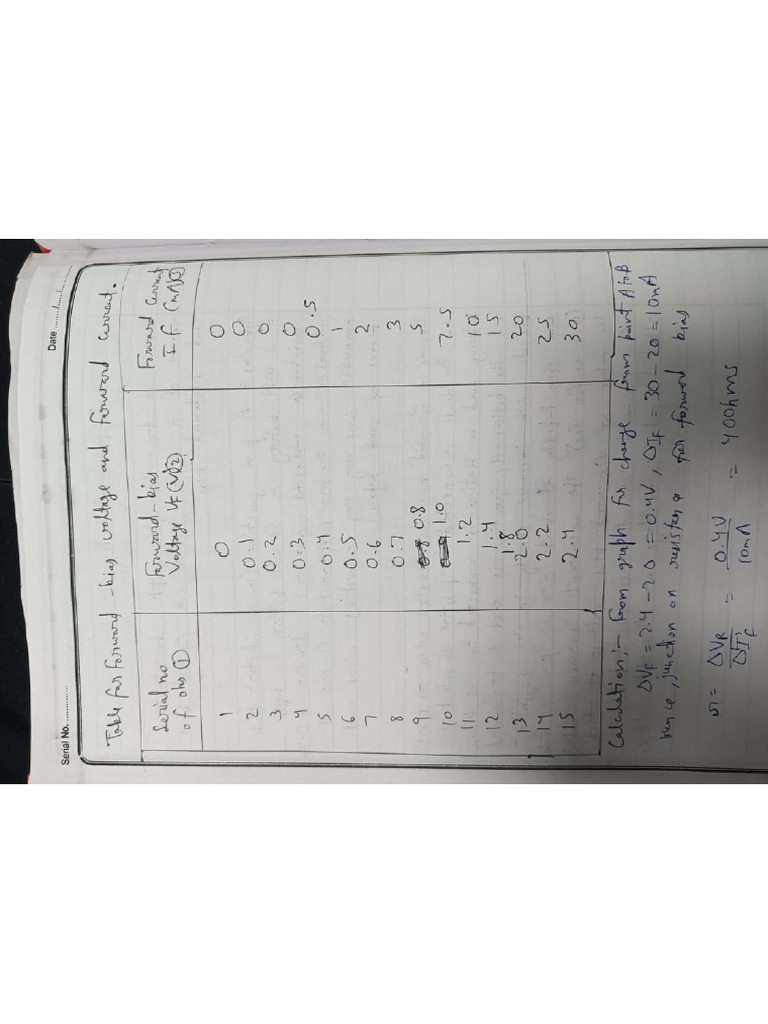 Serial No. ............
Date ....../....../......
Table for Forward -bias voltage and forward current.
Serial no of obs ① Forward-bias Voltage VF (V)② Forward Current I.F. (mA)③
1 0 0
2 0.1 0
3 0.2 0
4 0.3 0
5 0.4 0.5
6 0.5 1
7 0.6 2
8 0.7 3
9 0.8 5
10 1.0 7.5
11 1.2 10
12 1.4 15
13 1.8 2.0 20
14 2.2 25
15 2.4 30
Calculation:- From graph for change from point A to B
ΔVF = 2.4 - 2.0 = 0.4V, ΔIF = 30 - 20 = 10mA
hence, junction on resistance for forward bias
r = ΔVF/ΔIF = 0.4V/10mA = 40 Ohms